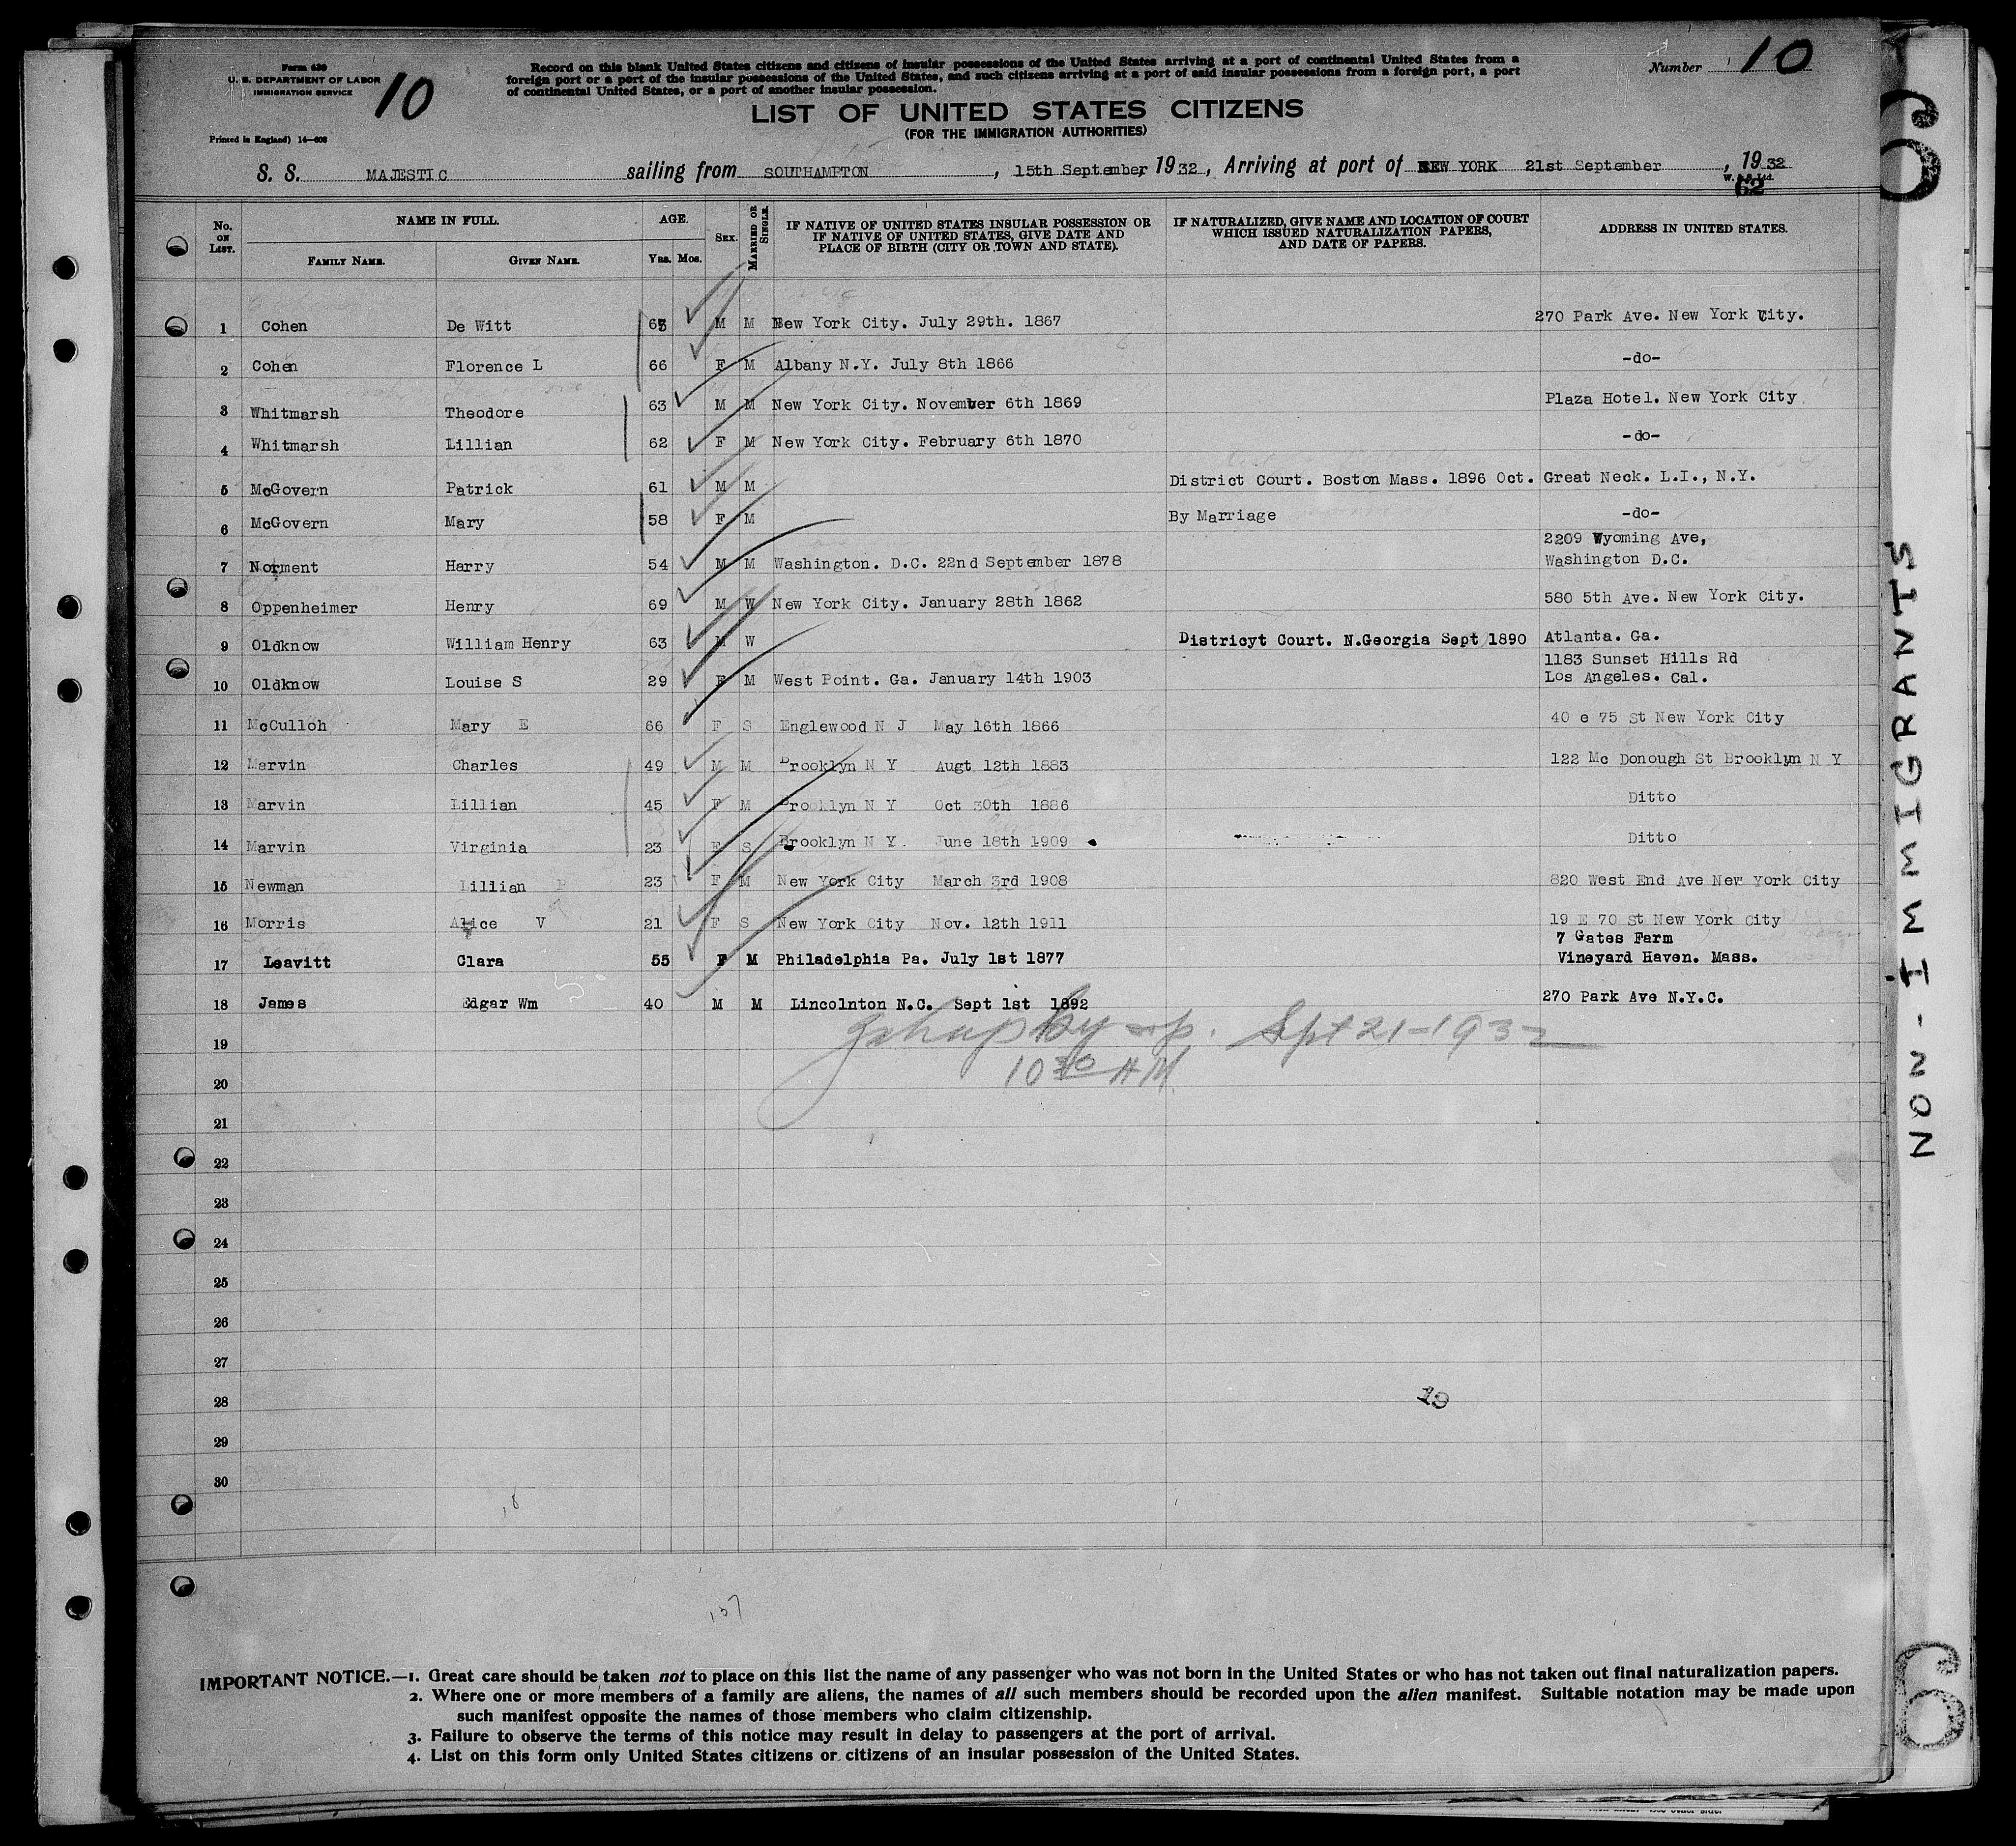 Form 630
U. S. DEPARTMENT OF LABOR
IMMIGRATION SERVICE
10
Printed in England) 14—608
Record on this blank United States citizens and citizens of insular possessions of the United States arriving at a port of continental United States from a
foreign port or a port of the insular possessions of the United States, and such citizens arriving at a port of said insular possessions from a foreign port, a port
of continental United States, or a port of another insular possession.
Number 10
LIST OF UNITED STATES CITIZENS
(FOR THE IMMIGRATION AUTHORITIES)
S. S. MAJESTIC sailing from SOUTHAMPTON, 15th September, 1932, Arriving at port of NEW YORK 21st September, 1932
62
No. ON LIST. NAME IN FULL. FAMILY NAME. GIVEN NAME. AGE. YRS. MOS. SEX. MARRIED OR SINGLE. IF NATIVE OF UNITED STATES INSULAR POSSESSION OR IF NATIVE OF UNITED STATES, GIVE DATE AND PLACE OF BIRTH (CITY OR TOWN AND STATE). IF NATURALIZED, GIVE NAME AND LOCATION OF COURT WHICH ISSUED NATURALIZATION PAPERS, AND DATE OF PAPERS. ADDRESS IN UNITED STATES.
1 Cohen De Witt 65 M M New York City. July 29th. 1867 270 Park Ave. New York City.
2 Cohen Florence L 66 F M Albany N.Y. July 8th 1866 -do-
3 Whitmarsh Theodore 63 M M New York City. November 6th 1869 Plaza Hotel. New York City
4 Whitmarsh Lillian 62 F M New York City. February 6th 1870 -do-
5 McGovern Patrick 61 M M District Court. Boston Mass. 1896 Oct. Great Neck. L.I., N.Y.
6 McGovern Mary 58 F M By Marriage -do-
7 Norment Harry 54 M M Washington. D.C. 22nd September 1878 2209 Wyoming Ave, Washington D.C.
8 Oppenheimer Henry 69 M W New York City. January 28th 1862 580 5th Ave. New York City.
9 Oldknow William Henry 63 M W Districyt Court. N.Georgia Sept 1890 Atlanta. Ga.
10 Oldknow Louise S 29 F M West Point. Ga. January 14th 1903 1183 Sunset Hills Rd Los Angeles. Cal.
11 McCulloh Mary E 66 F S Englewood N J May 16th 1866 40 e 75 St New York City
12 Marvin Charles 49 M M Brooklyn N Y Augt 12th 1883 122 Mc Donough St Brooklyn N Y
13 Marvin Lillian 45 F M Brooklyn N Y Oct 30th 1886 Ditto
14 Marvin Virginia 23 F S Brooklyn N Y. June 18th 1909 Ditto
15 Newman Lillian 23 F M New York City March 3rd 1908 820 West End Ave New York City
16 Morris Alice V 21 F S New York City Nov. 12th 1911 19 E 70 St New York City
17 Leavitt Clara 55 F M Philadelphia Pa. July 1st 1877 7 Gates Farm Vineyard Haven. Mass.
18 James Edgar Wm 40 M M Lincolnton N.C. Sept 1st 1892 270 Park Ave N.Y.C.
19
Spt 21-1932
20
10 30 AM
21
22
23
24
25
26
27
28
19
29
30
137
IMPORTANT NOTICE.—1. Great care should be taken not to place on this list the name of any passenger who was not born in the United States or who has not taken out final naturalization papers.
2. Where one or more members of a family are aliens, the names of all such members should be recorded upon the alien manifest. Suitable notation may be made upon
such manifest opposite the names of those members who claim citizenship.
3. Failure to observe the terms of this notice may result in delay to passengers at the port of arrival.
4. List on this form only United States citizens or citizens of an insular possession of the United States.
NON-IMMIGRANTS